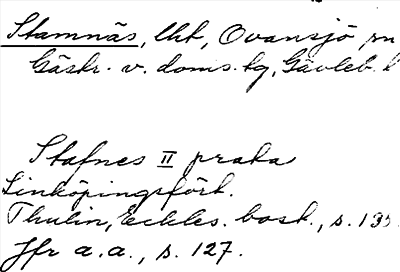 Stamnäs, lht, Ovansjö sn
Gästr. v. doms. hg, Gävleb. l
Stafnes II praka
Linköpingsförh.
Thulin, Eckles. bost., s. 135.
Jfr a.a., s. 127.